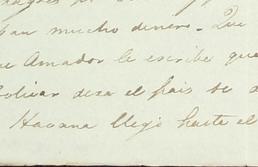 san mucho dinero. Que
Amador le escribe que
Bolivar deza el pais se
Havana llegó hasta el